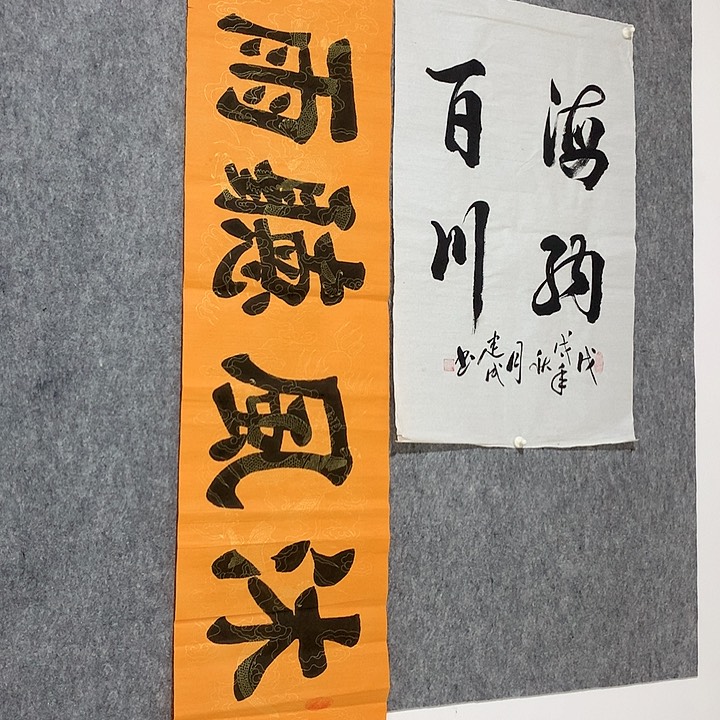 沐風聽雨
海納
百川
戊戌年秋月建成书